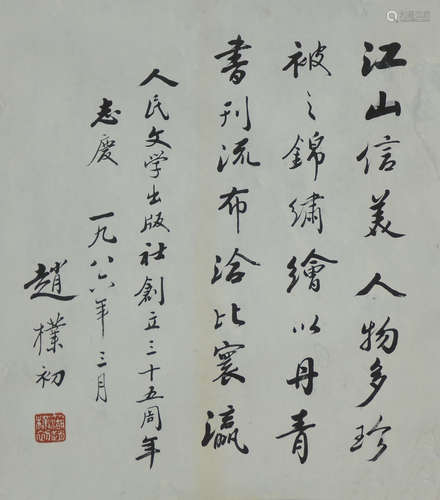 江山信美人物多珍
被之錦繡繪以丹青
書刊流布洽比寰瀛
人民文学出版社創立三十五周年
志慶 一九八六年三月
趙樸初